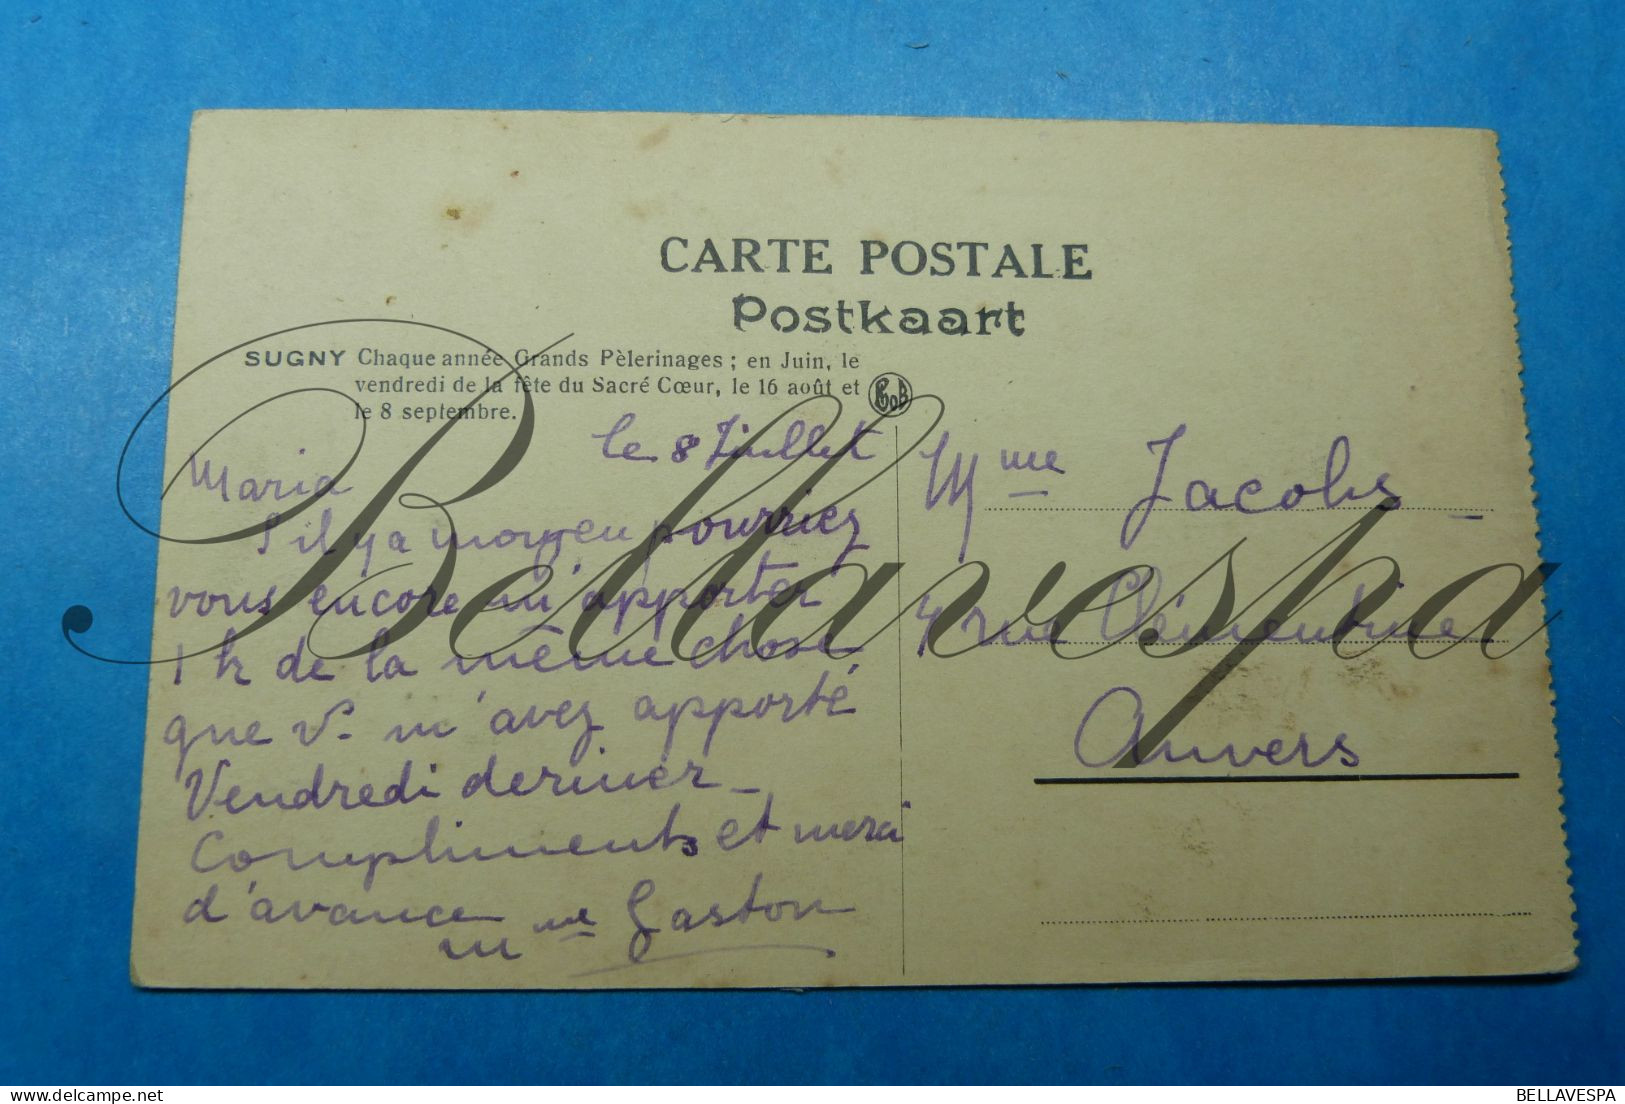 CARTE POSTALE
Postkaart
SUGNY Chaque année Grands Pèlerinages ; en Juin, le
vendredi de la fête du Sacré Cœur, le 16 août et
le 8 septembre.
le 8 Juillet
Maria
S'il y a moyen pourriez
vous encore m'apporter
1 k de la même chose
que v. m'avez apporté
Vendredi dernier_
Compliments et merci
d'avance
Mme Gaston
Mme Jacobs_
4 rue Clémentine
Anvers
Bellavespa
BELLAVESPA